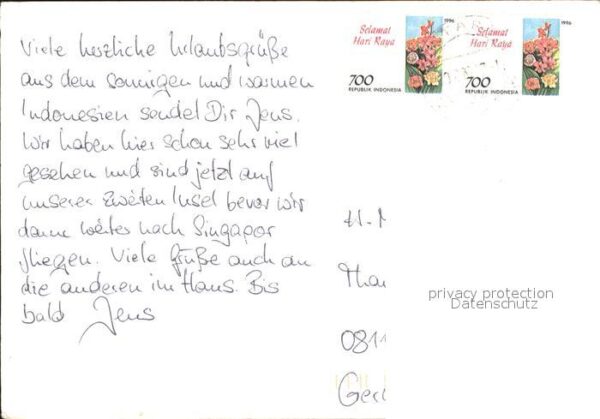 Viele herzliche Urlaubsgrüße
aus dem sonnigen und warmen
Indonesien sendet Dir Jens.
Wir haben hier schon sehr viel
gesehen und sind jetzt auf
unserer zweiten Insel bevor wir
dann weiter nach Singapor
fliegen. Viele Grüße auch an
die anderen im Haus. Bis
bald Jens
Selamat
Hari Raya
1996
700
REPUBLIK INDONESIA
Selamat
Hari Raya
1996
700
REPUBLIK INDONESIA
H.
Tha
081
Ger
privacy protection
Datenschutz